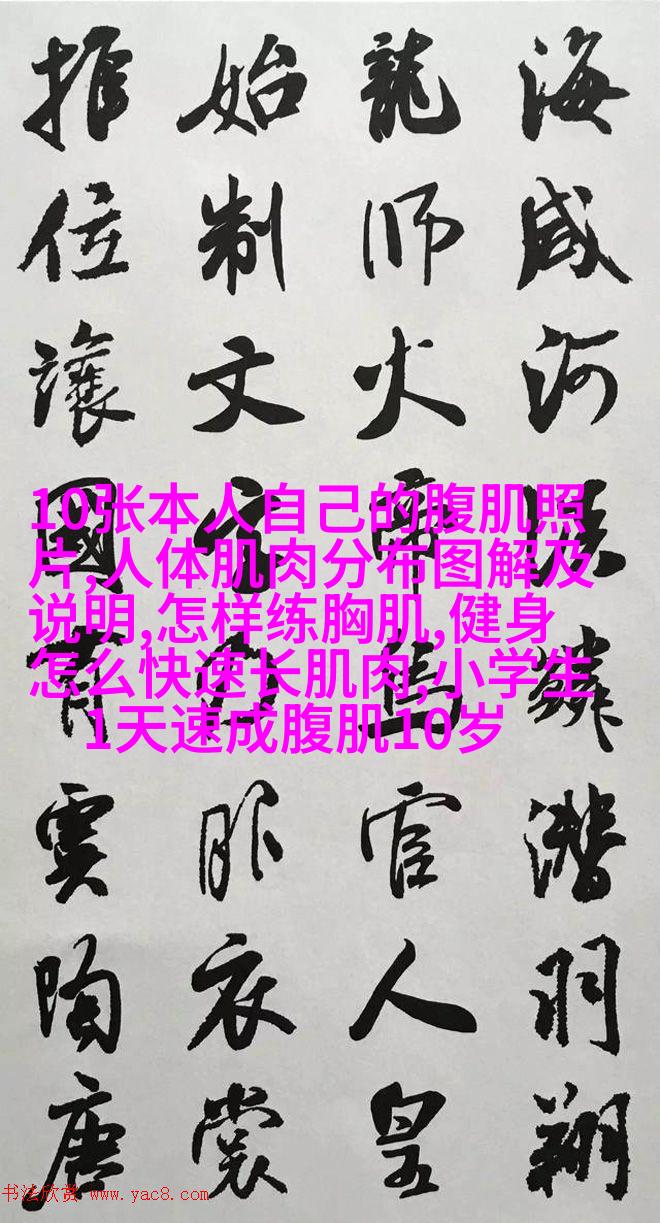 海咸河淡鱗潛羽翔
龍師火帝鳥官人皇
始制文字乃服衣裳
推位讓國有虞陶唐
10张本人自己的腹肌照
片,人体肌肉分布图解及
说明,怎样练胸肌,健身
怎么快速长肌肉,小学生
1天速成腹肌10岁
书法欣赏 www.yac8.com